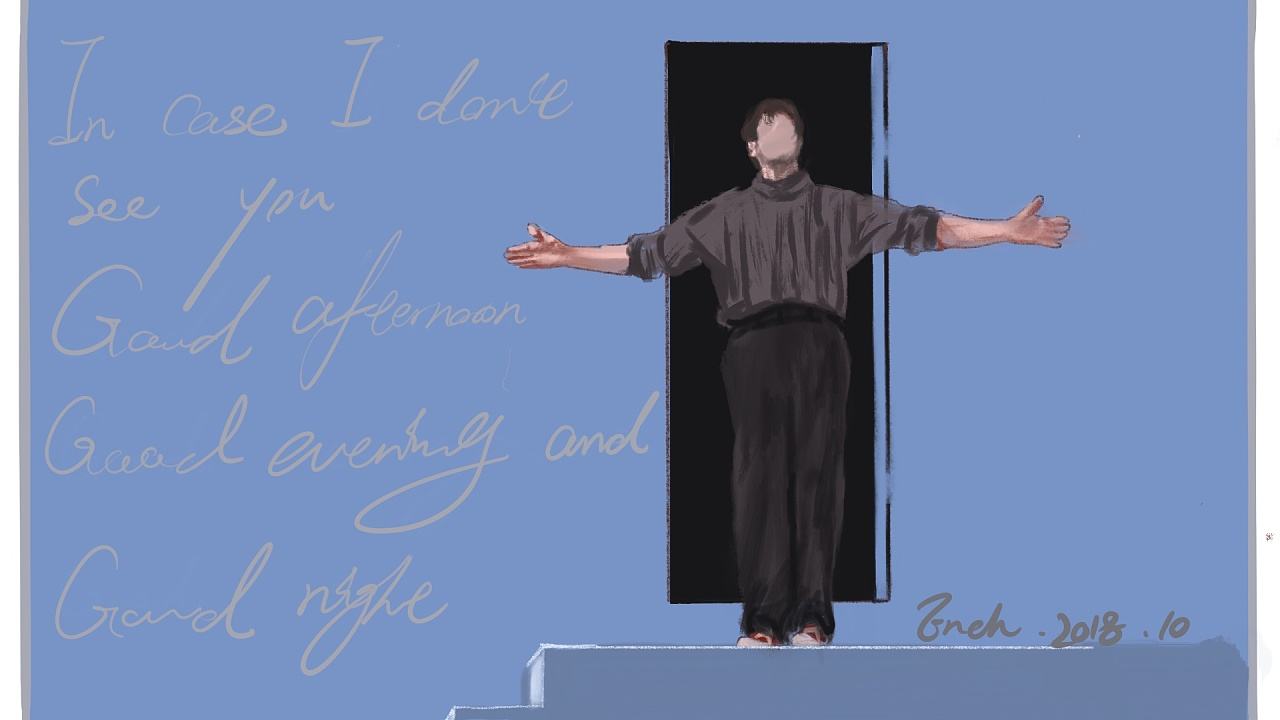 In case I don't
See you
Good afternoon
Good evening and
Good night
.2018.10